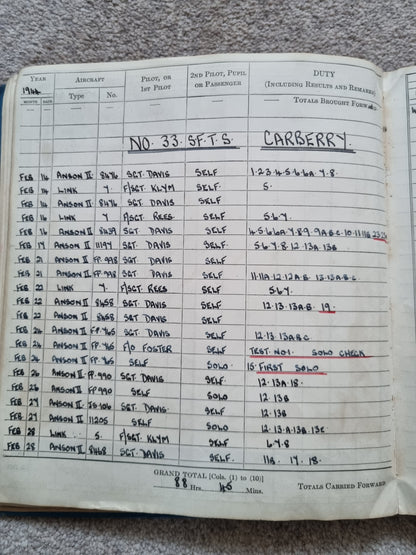 YEAR AIRCRAFT PILOT, OR 2ND PILOT, PUPIL DUTY
1944 1ST PILOT OR PASSENGER (INCLUDING RESULTS AND REMARKS)
MONTH DATE Type No.
— — — — — — TOTALS BROUGHT FORWARD
NO. 33. S.F.T.S. CARBERRY.
FEB 14 ANSON II 8476 SGT. DAVIS SELF 1·2·3·4·5·6·6A·7·8.
FEB 14 LINK 7. F/SGT. KLYM SELF 5.
FEB 14 ANSON II 8476 SGT. DAVIS SELF
FEB 14 LINK 7 F/SGT. REES SELF 5·6·7.
FEB 16 ANSON II 8439 SGT. DAVIS SELF
FEB 17 ANSON II 11197 SGT. DAVIS SELF 5·6·7·8·12·13A·13B
FEB 21 ANSON II FP.998 SGT. DAVIS SELF
FEB 21 ANSON II FP.998 SGT. DAVIS SELF
FEB 22 LINK 7. F/SGT. REES SELF 5·6·7.
FEB 22 ANSON II 8458 SGT. DAVIS SELF 12·13·13A·B· 19.
FEB 22 ANSON II 8458 SGT. DAVIS SELF
FEB 26 ANSON II FP.765 SGT DAVIS SELF 12·13·13A·B·C
FEB 26 ANSON II FP.765 F/O FOSTER SELF TEST NO1. SOLO CHECK
FEB 26 ANSON II FP.765 SELF SOLO 15· FIRST SOLO
FEB 26 ANSON II FP.990 SGT. DAVIS SELF. 12·13A·18·
FEB 26 ANSON II FP990 SELF SOLO 12·13B
FEB 27 ANSON II SGT. DAVIS· SELF 12·13B
FEB 27 ANSON II 11205 SELF SOLO
FEB 28 LINK 5. F/SGT. KLYM SELF 6·7·8
FEB 28 ANSON II 8468 SGT. DAVIS SELF 11B. 17. 18.
GRAND TOTAL [Cols. (1) to (10)]
88 Hrs. 45 Mins. TOTALS CARRIED FORWARD